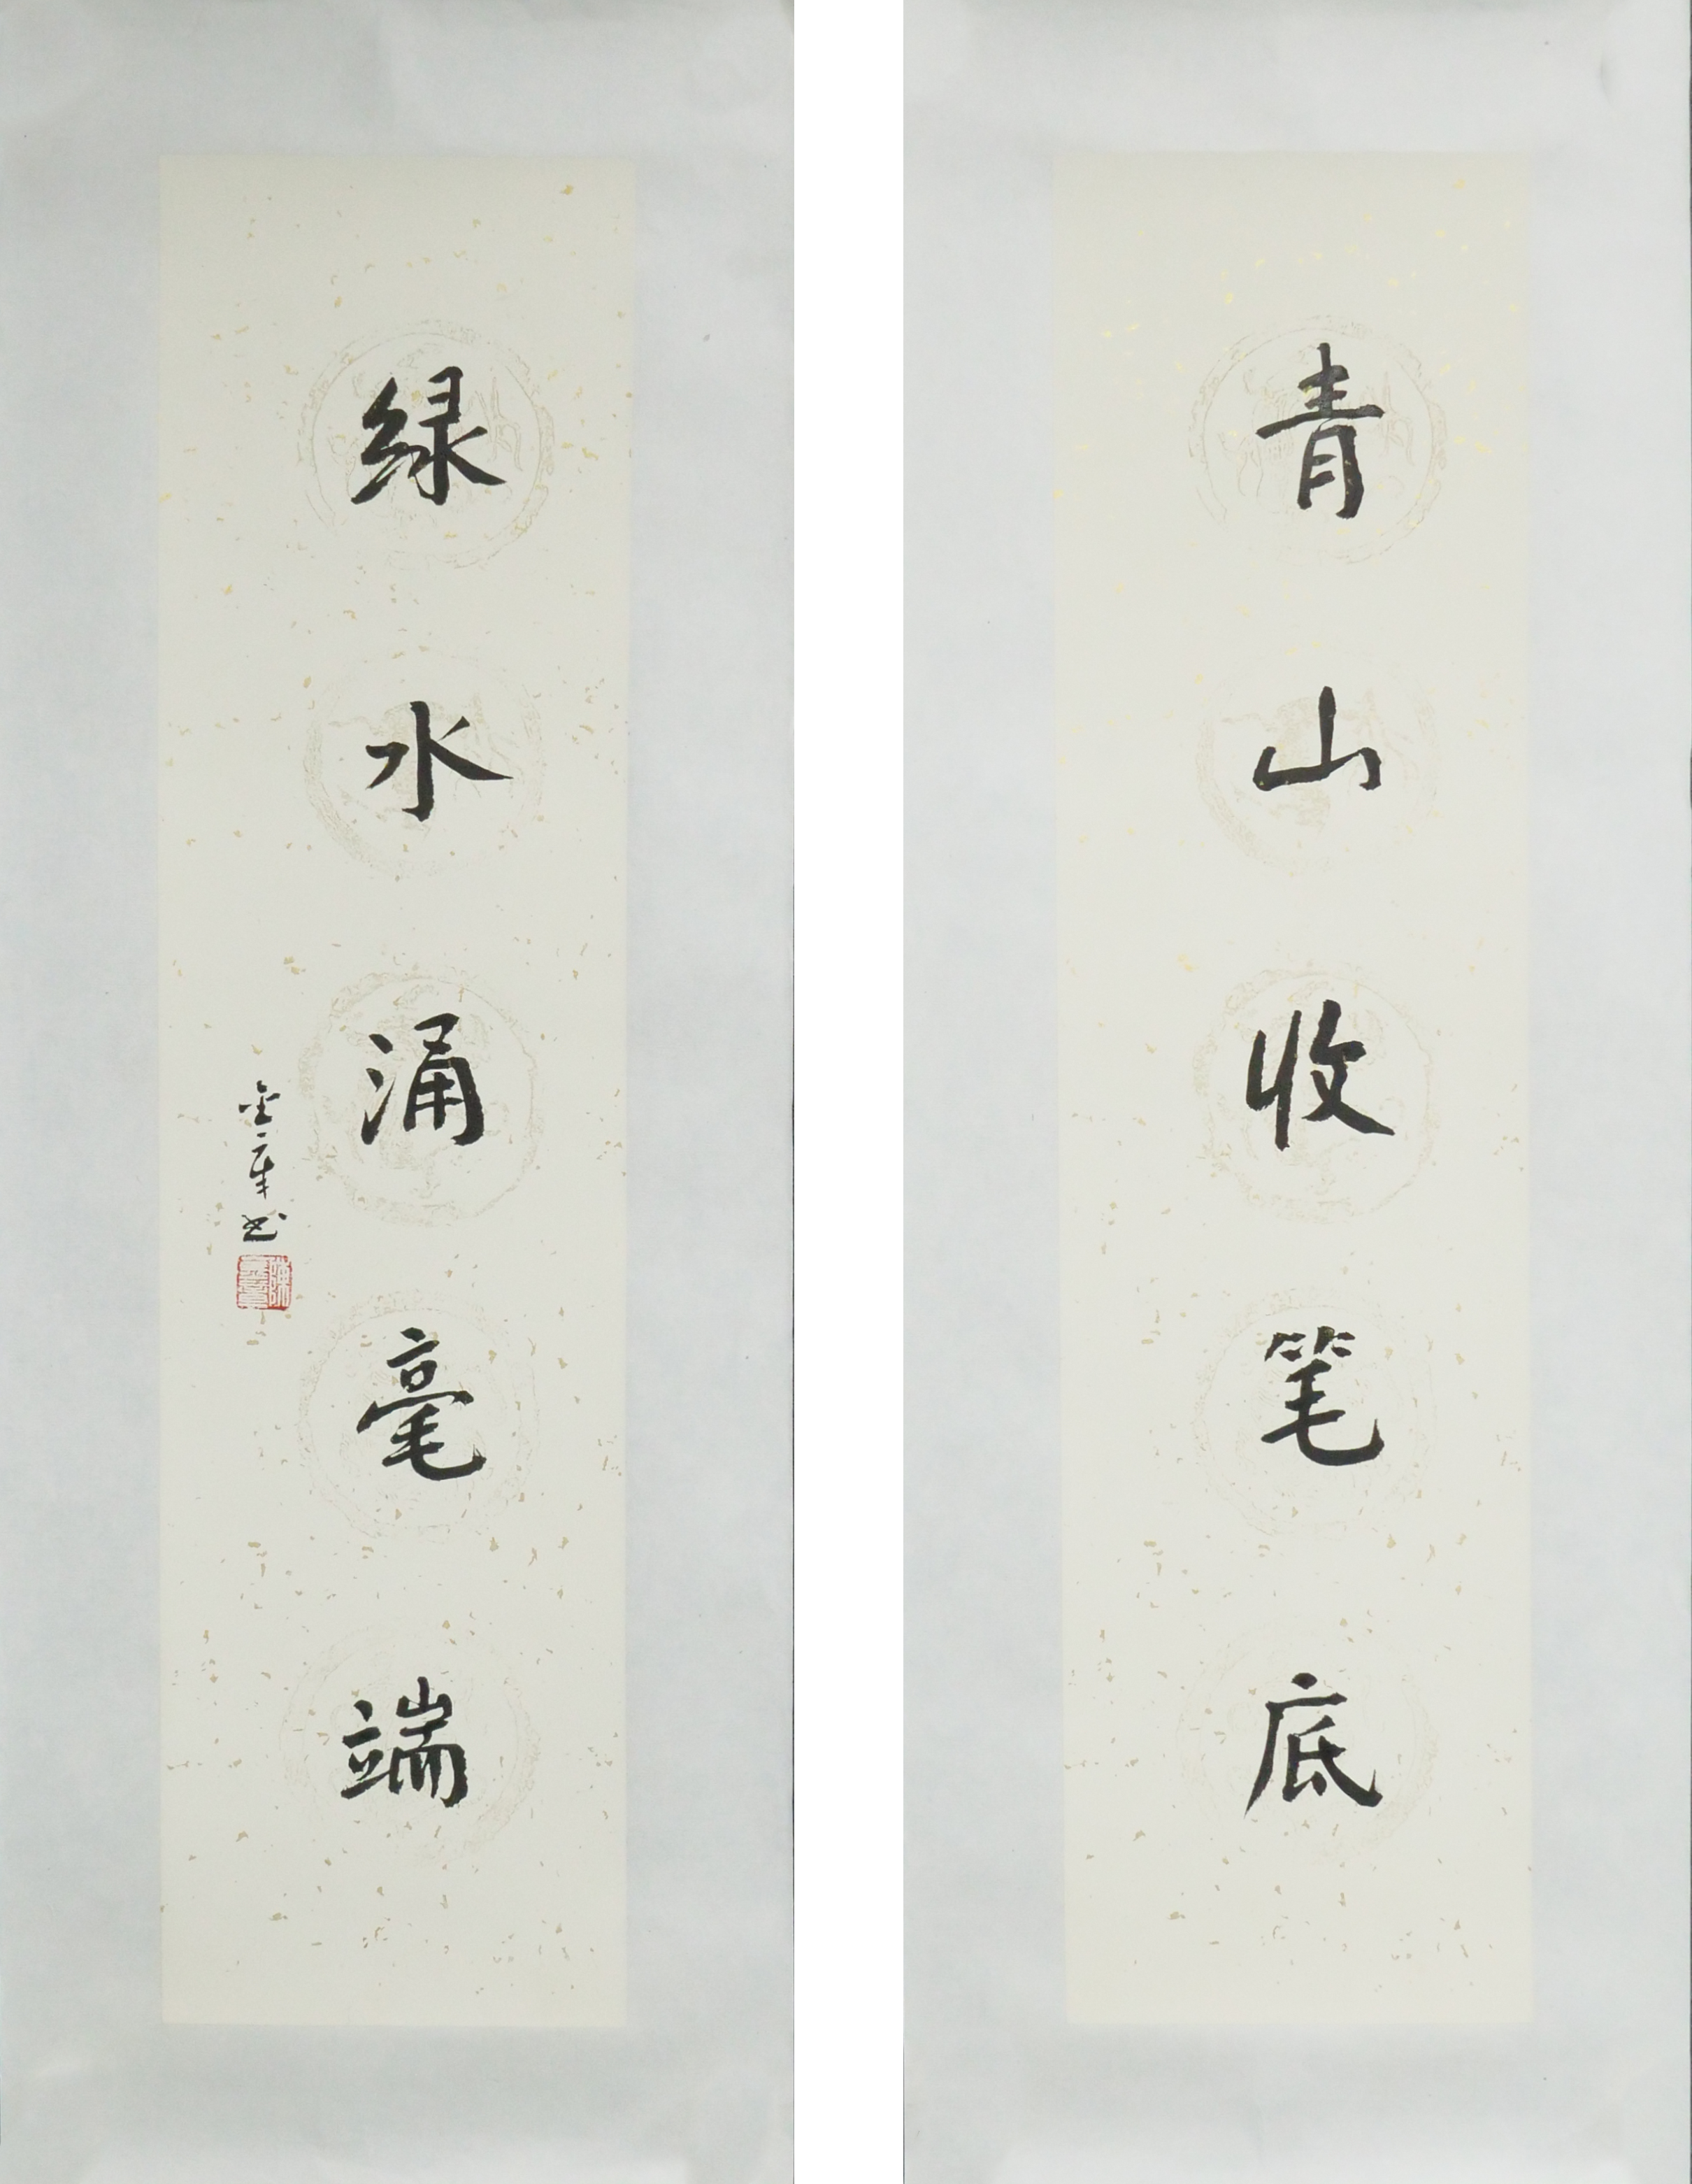 青山收笔底
绿水涌毫端
金章书